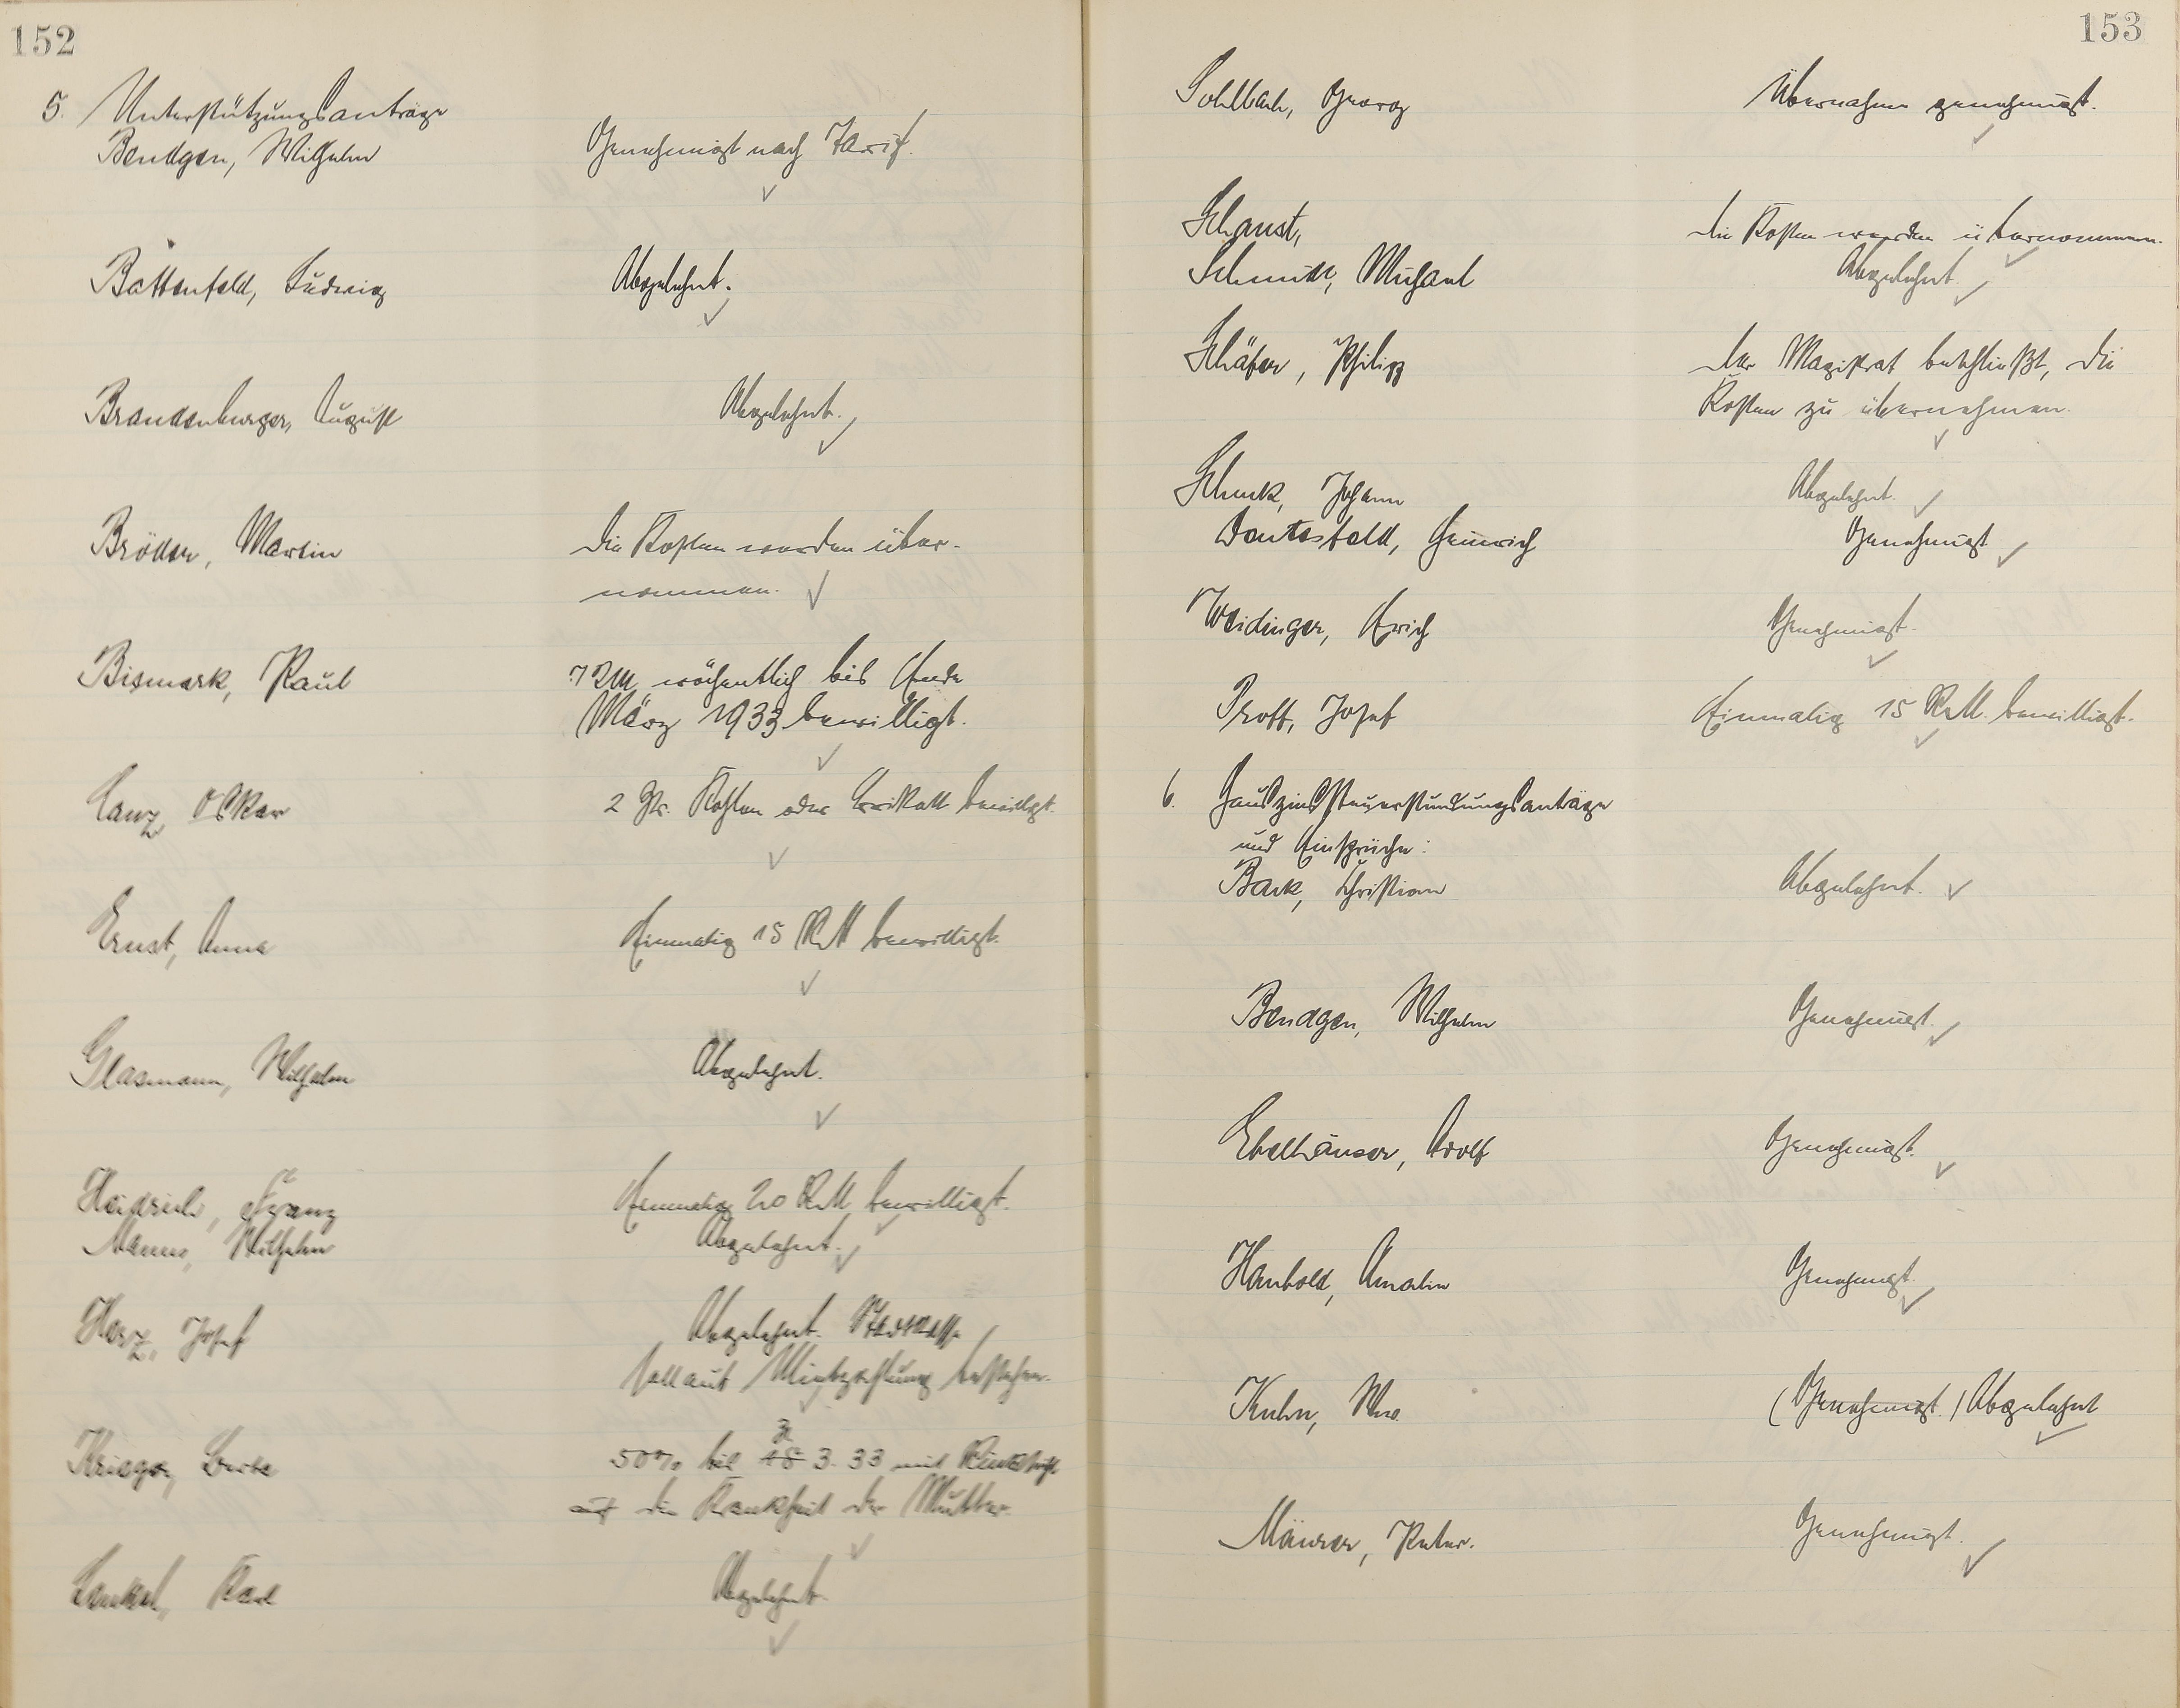 152
5. Unterstützungsanträge
Bendgen, Wilhelm Genehmigt nach Tarif.
Battenfeld, Ludwig Abgelehnt.
Brandenburger, August Abgelehnt.
Bröder, Martin Die Kosten werden über-
nommen.
Bismark, Paul 7 RM wöchentlich bis Ende
März 1933 bewilligt.
Lanz, Oskar 2 Ztr. Kohlen oder Brikett bewilligt.
Ernst, Anna Einmalig 15 RM bewilligt.
Glasmann, Wilhelm Abgelehnt.
Heidrich, Franz Einmalig 20 RM bewilligt.
Manns, Wilhelm Abgelehnt.
Herz, Josef Abgelehnt. Stadtkasse
soll auf Mietzahlung bestehen.
Krieger, 50% bis 3. 33 mit Rücksicht
auf die Krankheit der Mutter.
Karl Abgelehnt.
153
Sohlbach, Georg Übernahme genehmigt.
Schaust, Die Kosten werden übernommen.
Schmidt, Michael Abgelehnt
Schäfer, Philipp Der Magistrat beschließt, die
Kosten zu übernehmen.
Schuck, Johann Abgelehnt.
Dontesfeld, Heinrich Genehmigt
Weidinger, Erich Genehmigt.
Prott, Josef Einmalig 15 RM. bewilligt.
6. Hauszinssteuerstundungsanträge
und Einsprüche:
Back, Christian Abgelehnt.
Bendgen, Wilhelm Genehmigt.
Ebelhäuser, Adolf Genehmigt.
Haubold, Amalie Genehmigt.
Kuhn, Wwe. (Genehmigt.) Abgelehnt
Mäurer, Peter. Genehmigt.